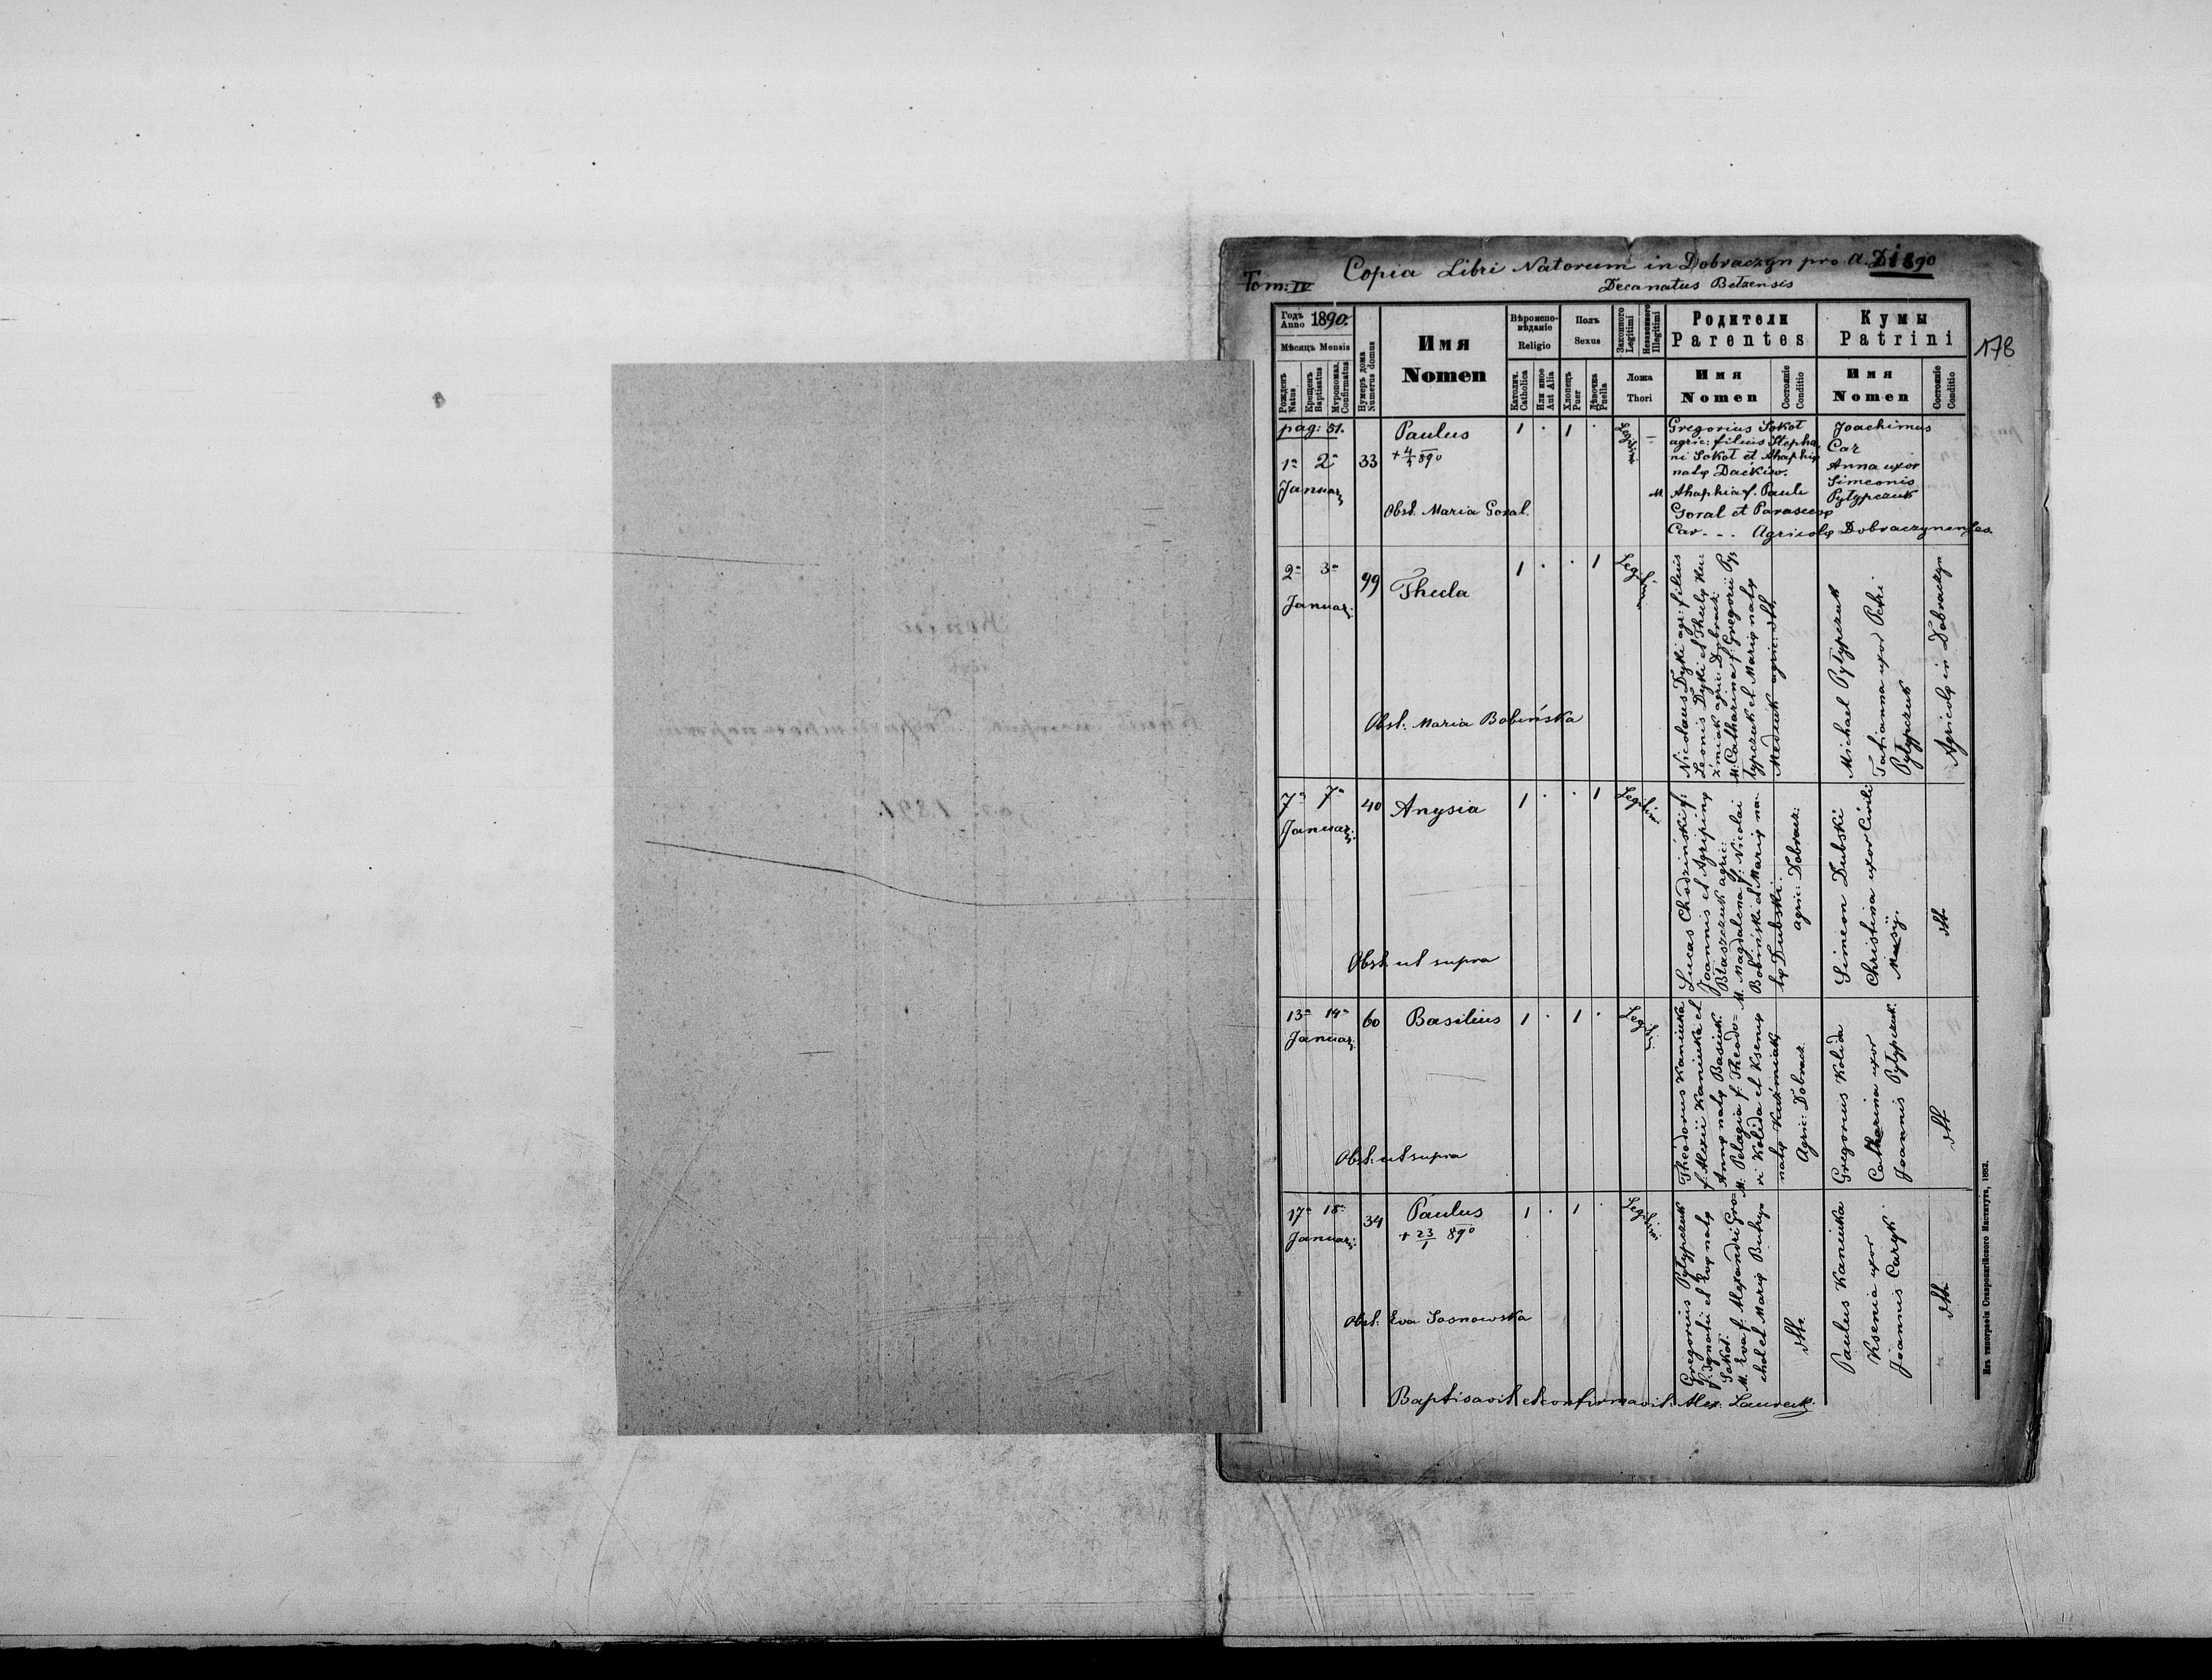 Copia Libri Natorum in Dobraczyn pro A. D. 1890
Tom: IV
Decanatus Betzensis
178
Годъ Anno 1890.
Мѣсяцъ Mensis
Рожденъ Natus
Крещенъ Baptisatus
Мѵропомаз. Confirmatus
Нумеръ дома Numerus domus
Имя
Nomen
Вѣроиспо-
вѣданіе
Religio
Католич. Catholica
Или иное Aut Alia
Полъ
Sexus
Хлопецъ Puer
Дѣвочка Puella
Законного Legitimi
Незаконного Illegitimi
Ложа
Thori
Родители
Parentes
Имя
Nomen
Состояніе Conditio
Кумы
Patrini
Имя
Nomen
Состояніе Conditio
pag: 51.
1a 2a
Januar
33
Paulus
+ 4/4 890
Obst. Maria Goral.
1 . 1 .
Legitimi
Gregorius Sokoł
agric: filius Stepha
ni Sokoł et Ahaphię
natę Daćkiw.
M. Ahaphia f. Pauli
Goral et Parascevę
Car - - Agricolę Dobraczynenses.
Joachimus
Car
Anna uxor
Simeonis
Pyłypczuk
2a 3a
Januar:
99
Thecla
Obst: Maria Bobińska
1 . . 1
Legitimi
Nicolaus Dyki agr: filius
Leonis Dyki et Theclę Ku
źmiak agric: Dobracz:
M: Catharina f: Gregorii Py
łypczuk et Marię natę
Medwik agric: dtt.
Michael Pyłypczuk
Tatianna uxor Petri
Pyłypczuk
Agricolę in Dobraczyn
7a 7a
Januar:
40
Anysia
Obst. ut supra
1 . . 1
Legitimi
Lucas Chodziński f:
Joannis et Agripinę
Błaszczuk agric:
M. Magdalena f: Nicolai
Bobiński et Marię na
tę Dubski.
agric: Dobracz:
Simeon Dubski
Christina uxor Cirili
dtt.
13a 14a
Januar:
60
Basilius
Obst: ut supra
1 . 1 .
Legitimi
Theodorus Kaniuka
f: Alexii Kaniuka et
Annę natę Basiuk.
M: Pelagia f. Theodo=
ri Kolida et Ksenię
natę Kuźmiak
Agric: Dobracz.
Gregorius Kolida
Catharina uxor
Joannis Pyłypczuk.
dtt.
17a 18a
Januar:
34
Paulus
+ 23/1 890
Obst: Eva Sosnowska
1 . 1 .
Legitimi
Gregorius Pyłypczuk
f: Ignatii et Evę natę
Sokoł.
M. Eva f. Alexandri Gro=
chol et Marię
dtt.
Paulus Kaniuka
Ksenia uxor
Joannis Caryk.
dtt.
Baptisavit et confirmavit: Alex:
Изъ типографіи Ставропигійского Института, 1883.